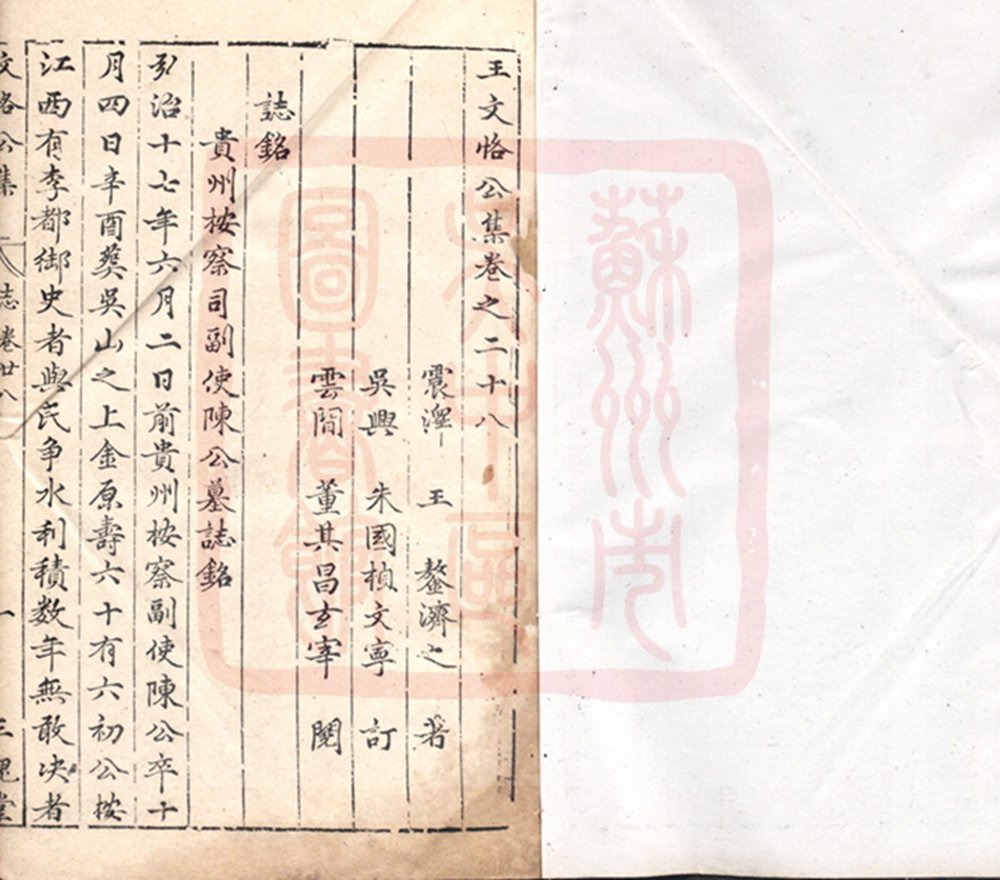 王文恪公集卷之二十八
震澤 王 鏊濟之 著
吳興 朱國楨文寧 訂
雲間 董其昌玄宰 閱
誌銘
貴州按察司副使陳公墓誌銘
弘治十七年六月二日前貴州按察副使陳公卒十
月四日辛酉葬吳山之上金原壽六十有六初公按
江西有李都御史者與民争水利積数年無敢决者
文恪公集 志卷廿八 一 三槐堂
蘇州市
吳中區
圖書館